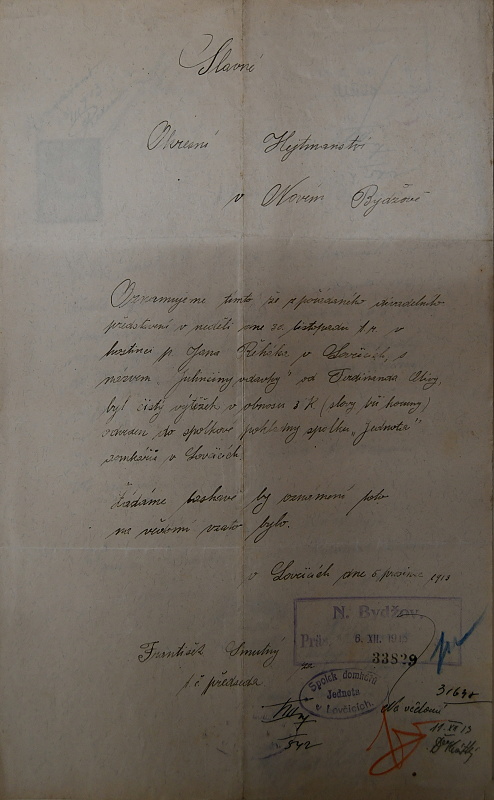 Slavné
Okresní Hejtmanství
v Novém Bydžově
Oznamujeme tímto že z pořádaného divadelního
představení v neděli dne 30. listopadu t. r. v
hostinci p. Jana Řeháka v Lovčicích, s
názvem „ vdavky" od Ferdinanda
byl čistý výtěžek v obnosu 3 K (slovy tři koruny)
odveden do spolkové pokladny spolku „Jednota"
domkářů v Lovčicích.
Žádáme laskavě by oznámení toto
na vědomí vzato bylo.
v Lovčicích dne 6. prosince 1913
N. Bydžov
Präs. 8. XII. 1913
33829
František Smutný
t č předseda
Spolek domkářů
Jednota
v Lovčicích.
31640
Na vědomí
11. XII 13